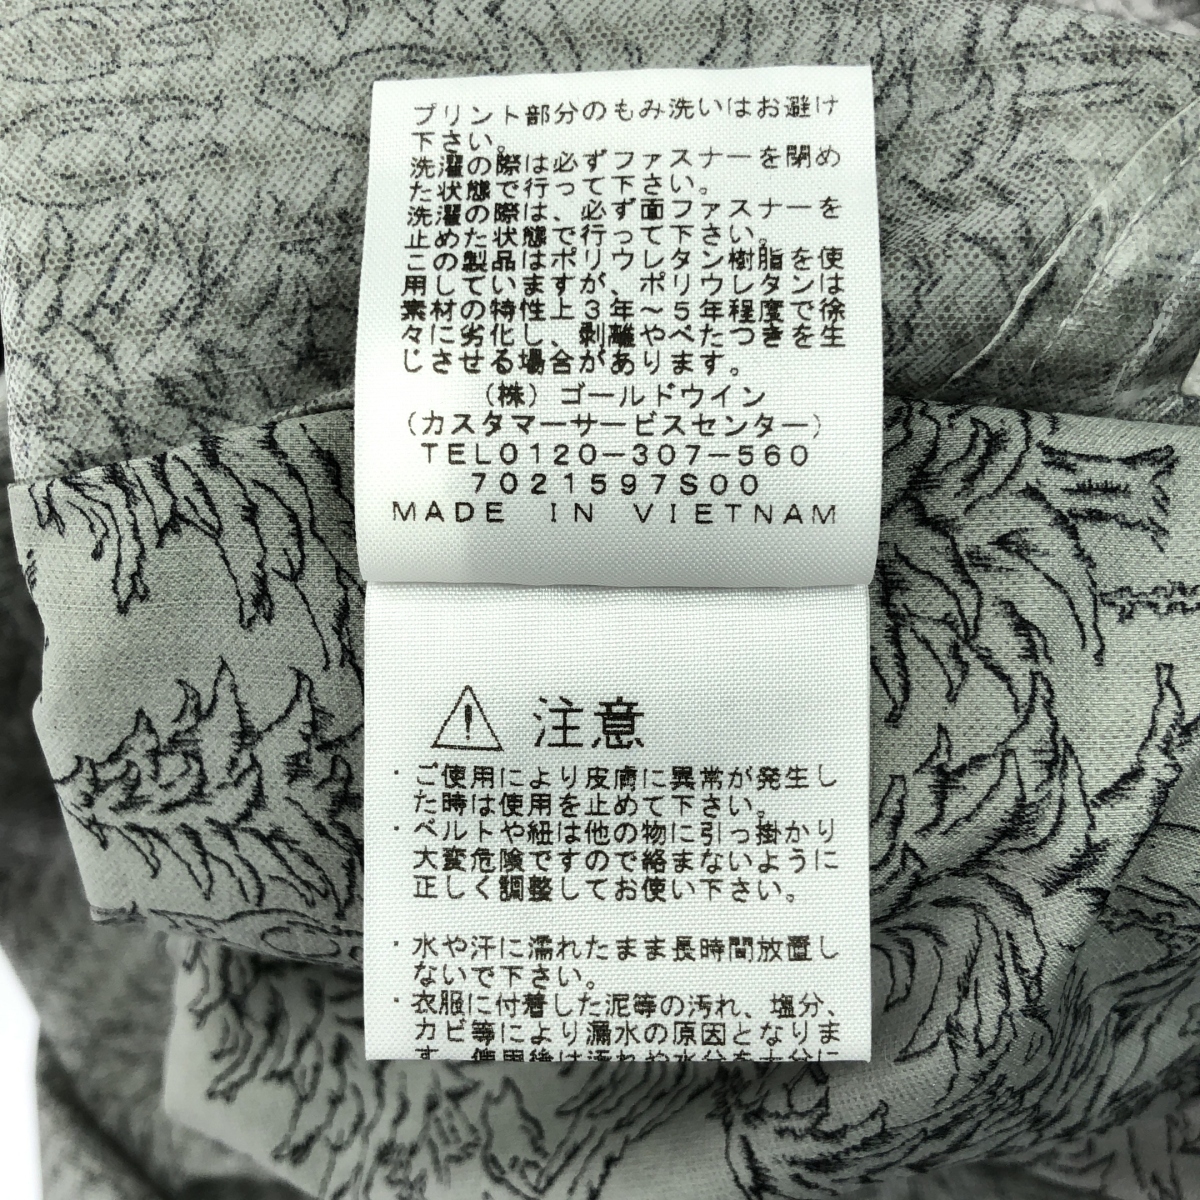 プリント部分のもみ洗いはお避け
下さい。
洗濯の際は必ずファスナーを閉め
た状態で行って下さい。
洗濯の際は、必ず面ファスナーを
止めた状態で行って下さい。
この製品はポリウレタン樹脂を使
用していますが、ポリウレタンは
素材の特性上3年～5年程度で徐
々に劣化し、剥離やべたつきを生
じさせる場合があります。
（株）ゴールドウイン
（カスタマーサービスセンター）
TEL0120-307-560
7021597S00
MADE IN VIETNAM
注意
・ご使用により皮膚に異常が発生し
た時は使用を止めて下さい。
・ベルトや紐は他の物に引っ掛かり
大変危険ですので絡まないように
正しく調整してお使い下さい。
・水や汗に濡れたまま長時間放置し
ないで下さい。
・衣服に付着した泥等の汚れ、塩分、
カビ等により漏水の原因となりま
す。使用後は汚れや水分を十分に